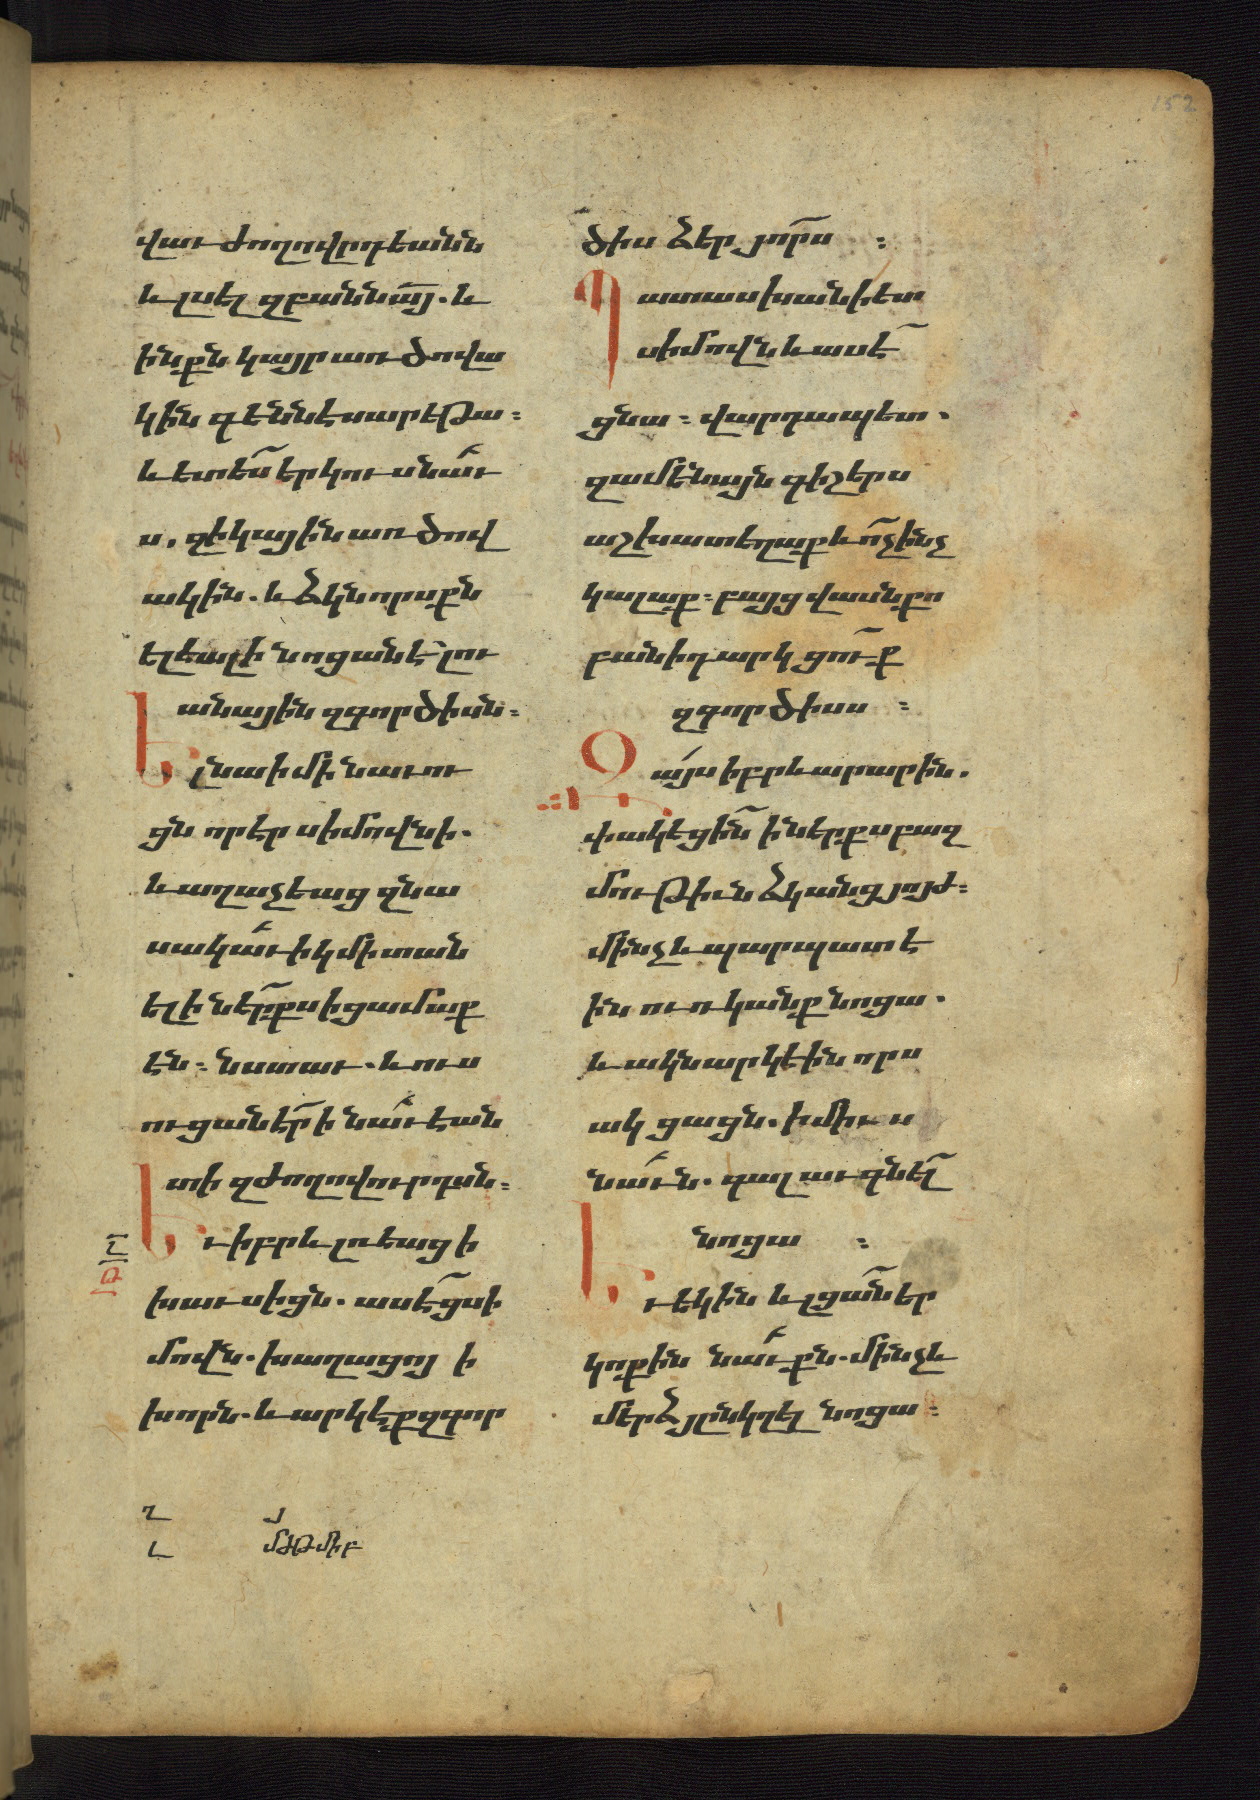 152
վաւ ժողովըդեանն
և լսել զբանն ա̅յ. և
ինքն կայր առ ծովա
կին գեննեսարեթա։
և ետե̅ս երկու նաւ
ս. զի կային առ ծով
ակին. և ձկնորսքն
ելեալ ի նոցանէ լու
անային զգործիսն։
Ելնա ի մի նաւու
ցն որ էր սիմովնի.
և աղաչեաց զնա
սակաւիկ մի տան
ել ի ներքս ի ցամաք
էն։ նստաւ. և ուս
ուցանէր ի նաւէ ան
տի զժողովուրդսն։
Եւ իբրև լռեաց ի
խաւսիցն. ասէ ցսի
մովն. խաղացոյ ի
խորն. և արկէք զգոր
ծիս ձեր յորս ։
Պատասխանի ետ
սիմովն և ասէ
ցնա։ վարդապետ.
զամենայն գիշերս
աշխատեղաք և ո̅չ ինչ
կալաք։ բայց վասն քո
բանիդ արկցու̅ք
զգործիսս ։
Զայս իբրև արարին.
փակեցին ի ներքս բազ
մութիւն ձկանց յոյժ։
մինչև պարպատէ
ին ուռկանք նոցա.
և ակնարկէին որս
ակցացն. ի միւս
նաւն. գալ աւգնել
նոցա ։
Եւ եկին և լցա̅ն եր
կոքին նաւքն. մինչև
մերձ յընկղել նոցա։